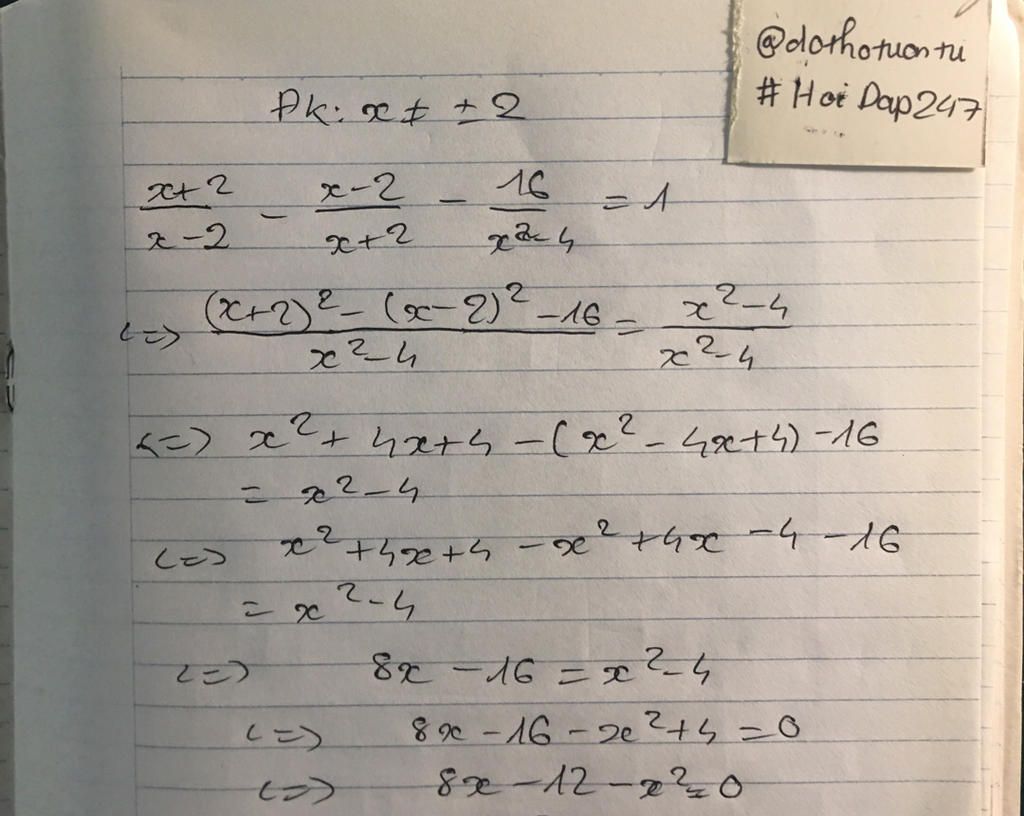 @dothotuantu
# Hoi Dap247
Đk: x ≠ ± 2
\frac{x+2}{x-2} - \frac{x-2}{x+2} - \frac{16}{x^2-4} = 1
<=> \frac{(x+2)^2 - (x-2)^2 - 16}{x^2-4} = \frac{x^2-4}{x^2-4}
<=> x² + 4x+4 - (x² - 4x+4) - 16
= x² - 4
<=> x² + 4x+4 - x² + 4x - 4 - 16
= x² - 4
<=> 8x - 16 = x² - 4
<=> 8x - 16 - x² + 4 = 0
<=> 8x - 12 - x² = 0